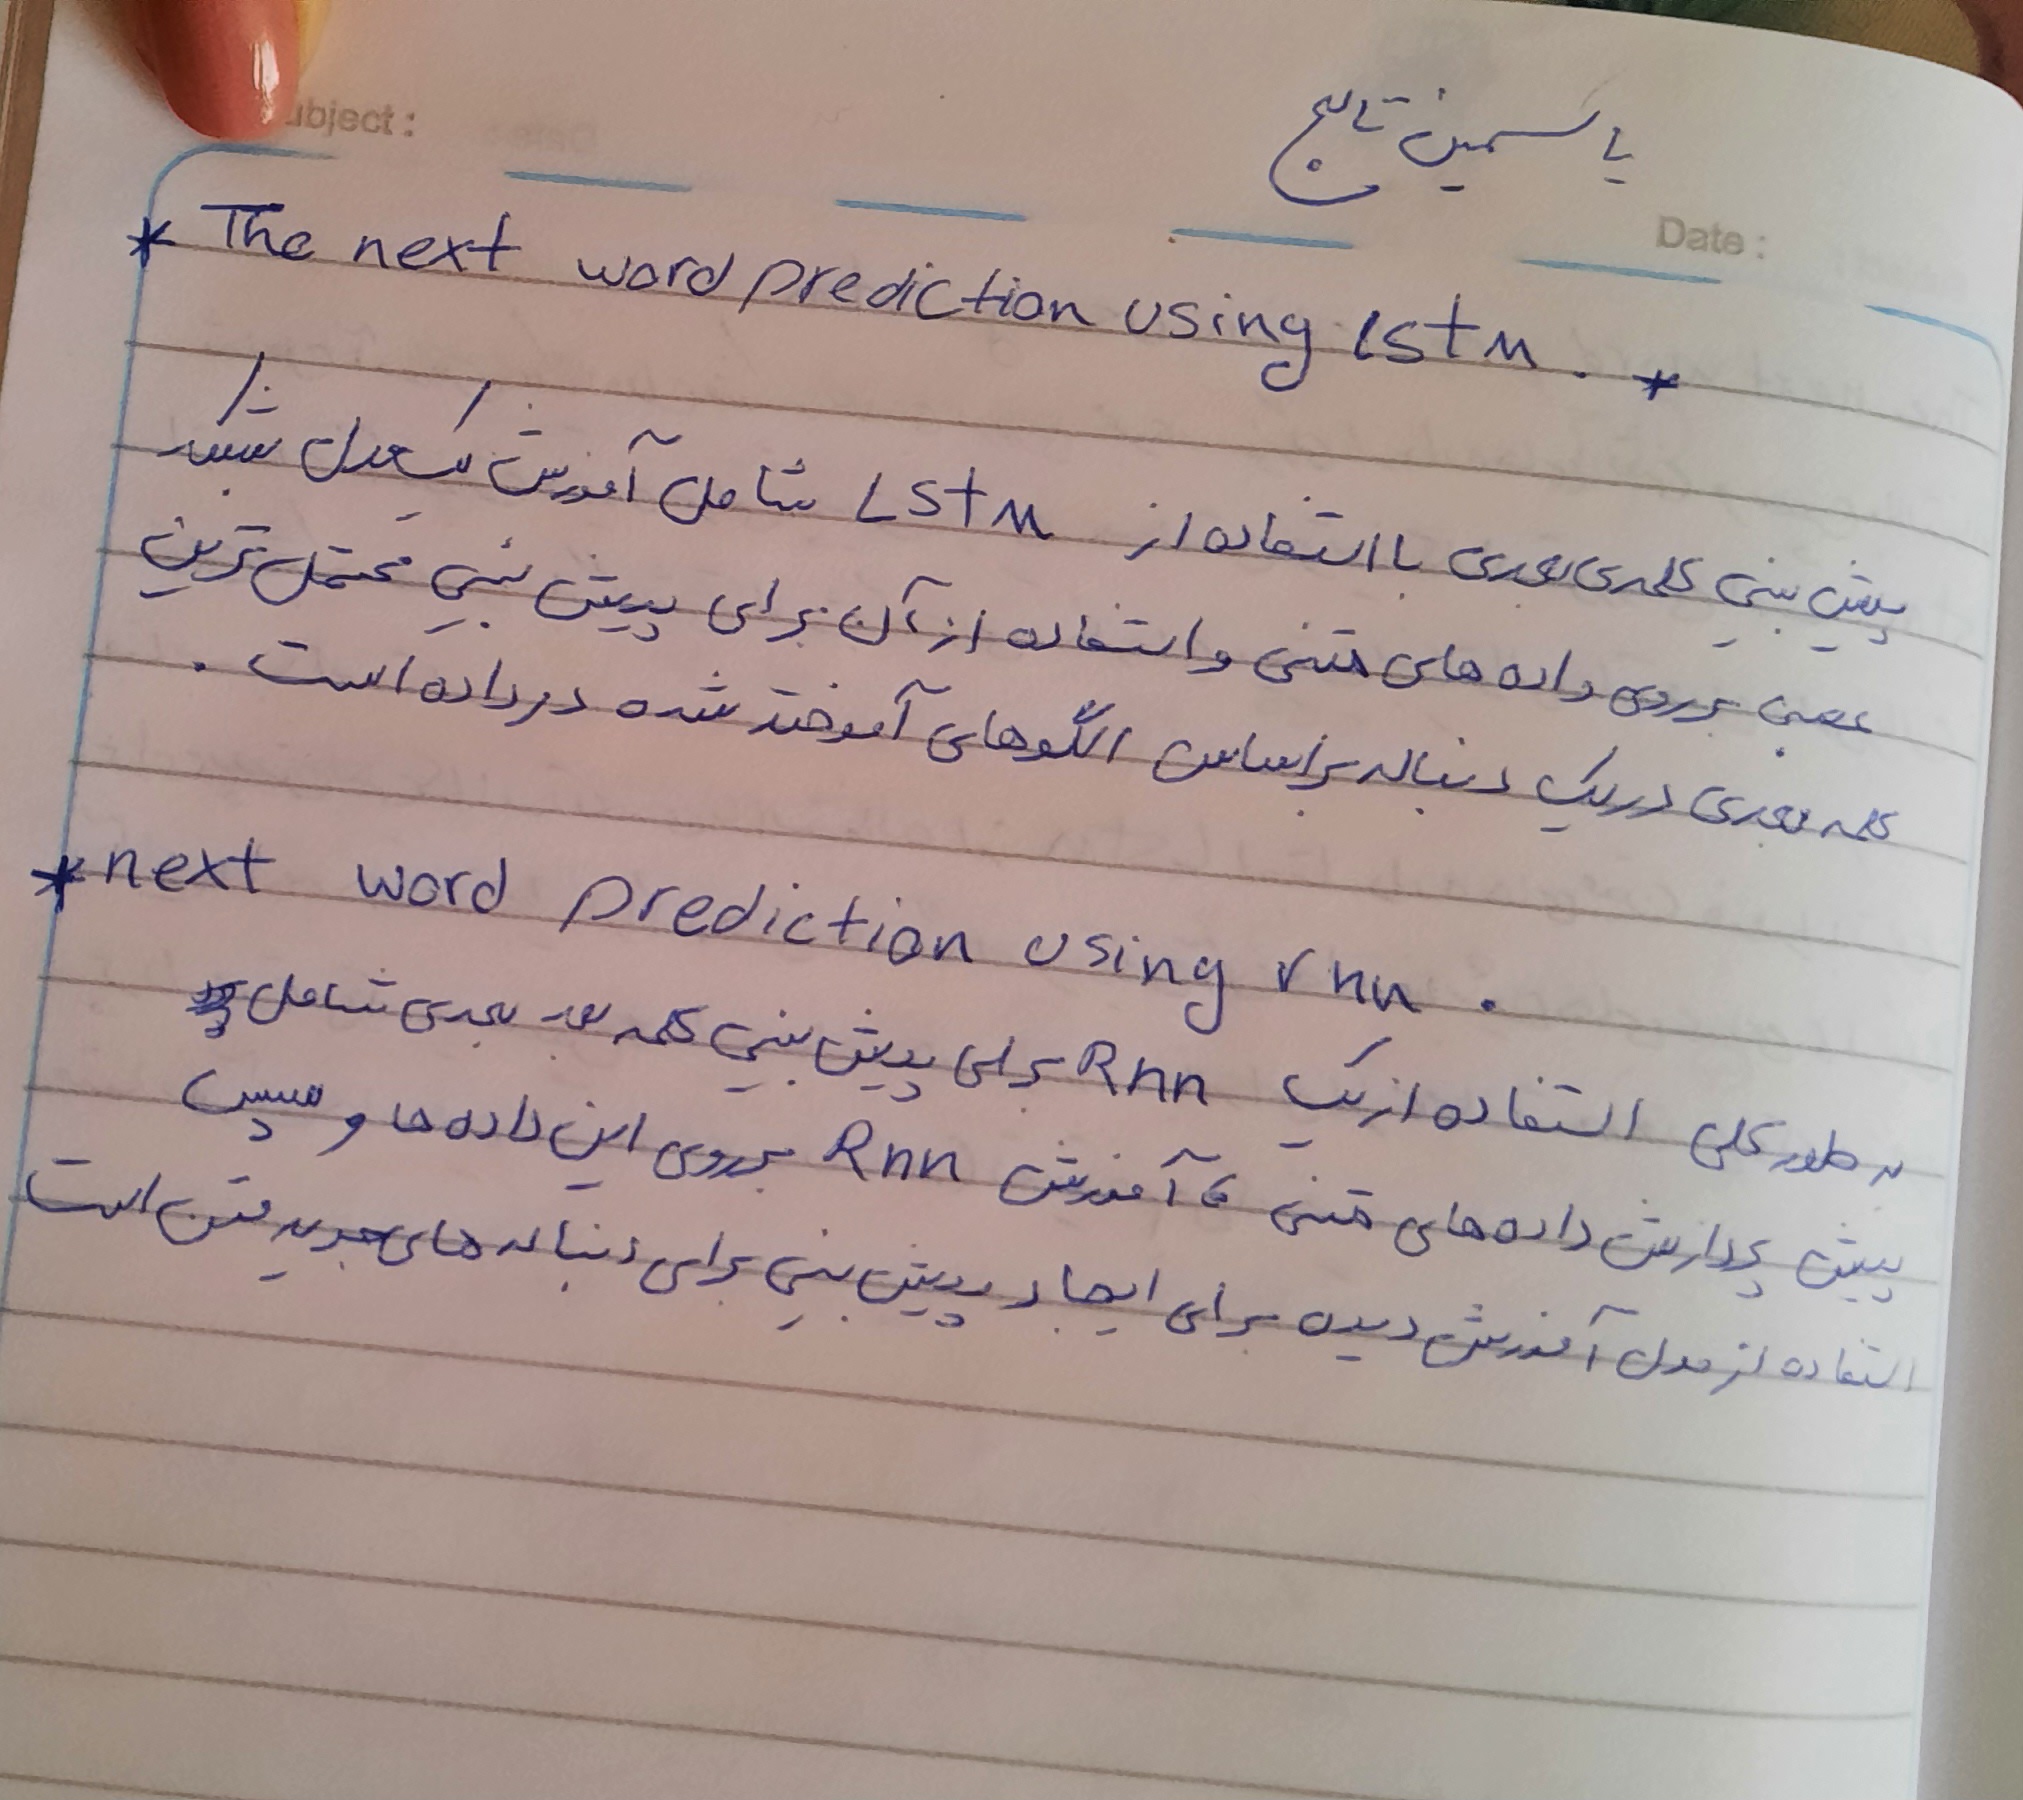 ubject :
یاسمین تاج
Date :
* The next word prediction using lstm . *
پیش بینی کلمه‌ی بعدی با استفاده از Lstm شامل آموزش یک مدل شبکه
عصبی بر روی داده های متنی و استفاده از آن برای پیش بینی محتمل ترین
کلمه بعدی در یک دنباله بر اساس الگوهای آموخته شده در داده است .
* next word prediction using rnn .
به طور کلی استفاده از یک Rnn برای پیش بینی کلمه بعد بعدی شامل
پیش پردازش داده های متنی ، آموزش Rnn بر روی این داده ها و سپس
استفاده از مدل آموزش دیده برای ایجاد پیش بینی برای دنباله های جدید متن است